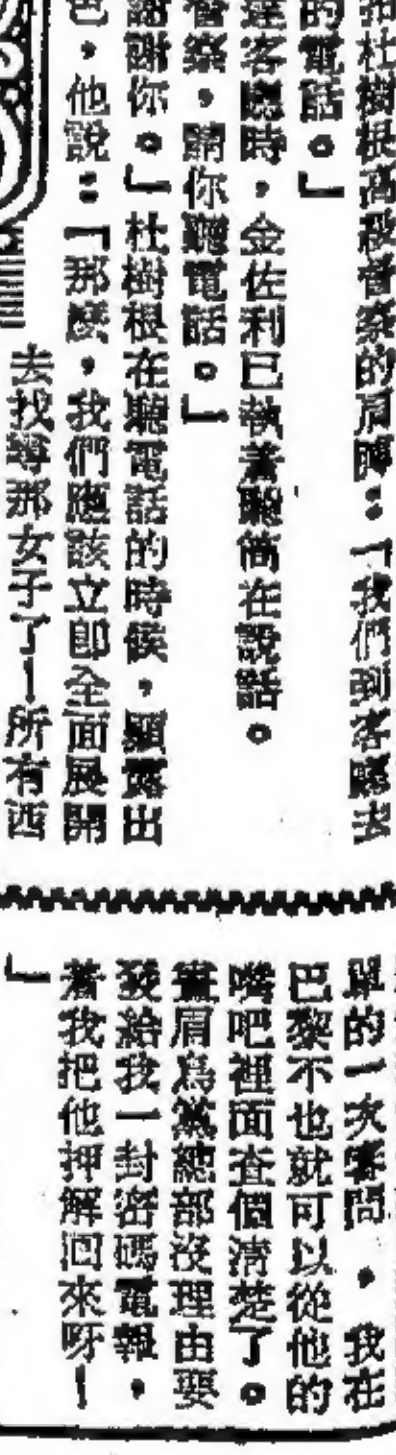 拍杜樹根高級督察的肩膊:「我們到客廳去
的電話。」
達客廳時,金佐利已執着聽筒在說話。
督察,請你聽電話。」
謝謝你。」杜樹根在聽電話的時候,顯露出
色,他說:「那麽,我們應該立即全面展開
去找尋那女子了——所有西
單的一次審問,我在
巴黎不也就可以從他的
嘴吧裡面查個清楚了。
畫眉鳥黨總部沒理由要
發給我一封密碼電報,
着我把他押解回來呀!
」